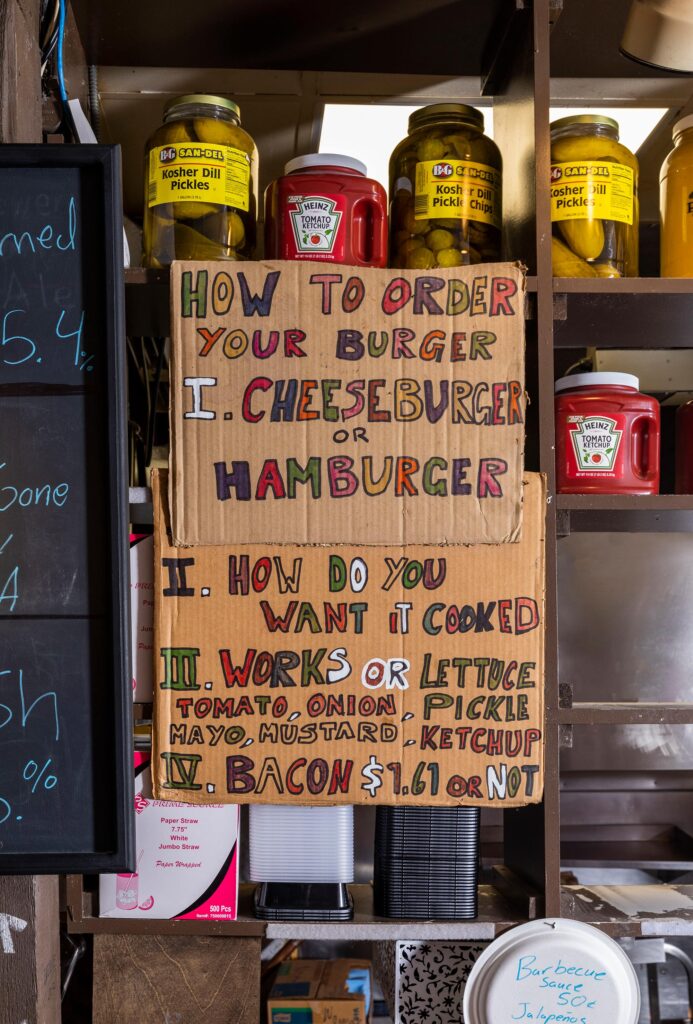 B&G SAN-DEL
Kosher Dill
Pickles
HEINZ
TOMATO
KETCHUP
B&G SAN-DEL
Kosher Dill
Pickle Chips
B&G SAN-DEL
Kosher Dill
Pickles
HEINZ
TOMATO
KETCHUP
med
5.4%
Gone
A
sh
%
HOW TO ORDER
YOUR BURGER
I. CHEESEBURGER
OR
HAMBURGER
II. HOW DO YOU
WANT IT COOKED
III. WORKS OR LETTUCE
TOMATO, ONION, PICKLE
MAYO, MUSTARD, KETCHUP
IV. BACON $1.61 OR NOT
PRIME SOURCE
Paper Straw
7.75"
White
Jumbo Straw
Paper Wrapped
500 Pcs
Barbecue
Sauce
50¢
Jalapeños